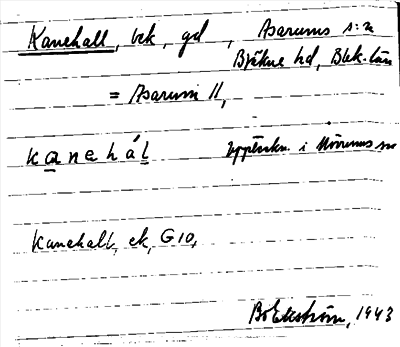 Kanehall, bek, gd, Asarums s:n
Bräkne hd, Blek. län
= Asarum 11,
kanehál Uppteckn. i Mörrums sn
Kanehall, ek, G10,
Bo Ekström, 1943